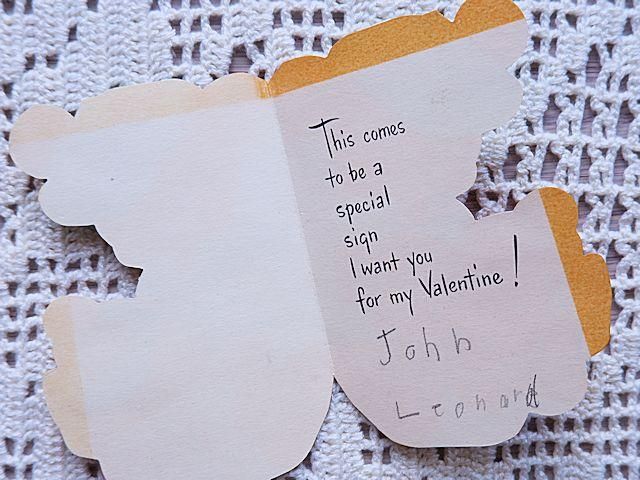 This comes
to be a
special
sign
I want you
for my Valentine!
John
Leonard